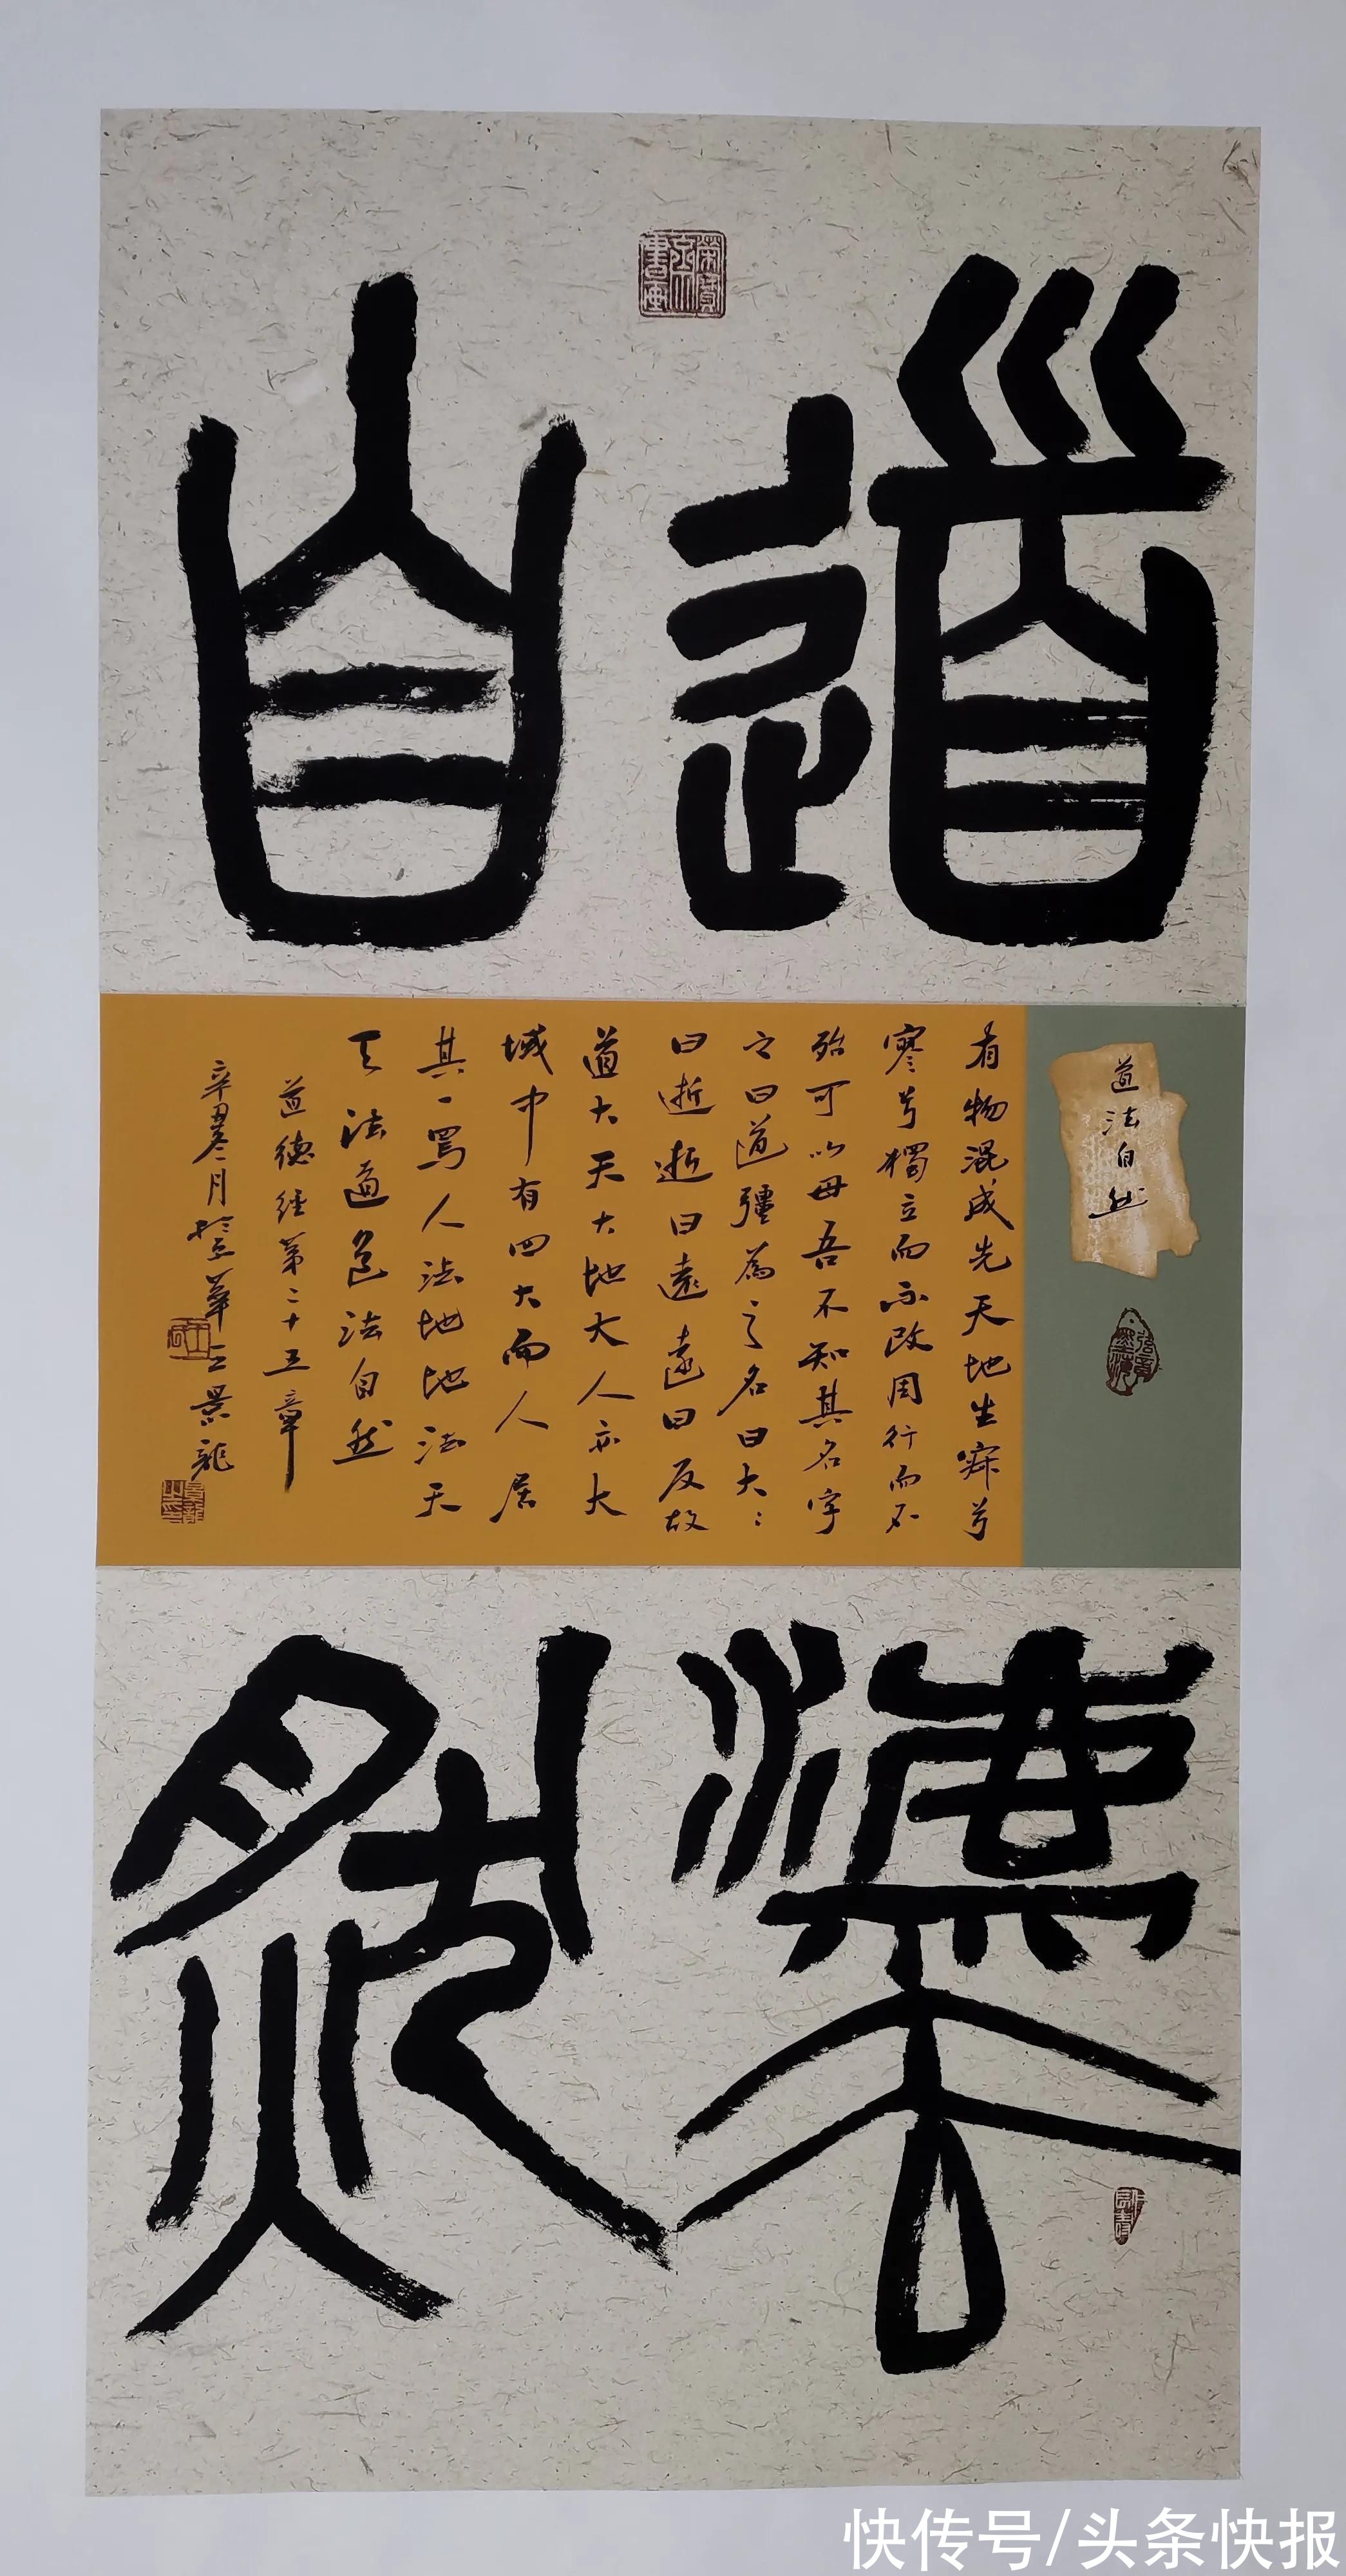 道
灋
自
然
榮寶齋書畫
道法自然
有物混成先天地生寂兮
寥兮獨立而不改周行而不
殆可以母吾不知其名字
之曰道彊為之名曰大〻
曰逝逝曰遠遠曰反故
道大天大地大人亦大
域中有四大而人居
其一焉人法地地法天
天法道道法自然
道德經第二十五章
辛丑寒月於京華王景龍
快传号/头条快报